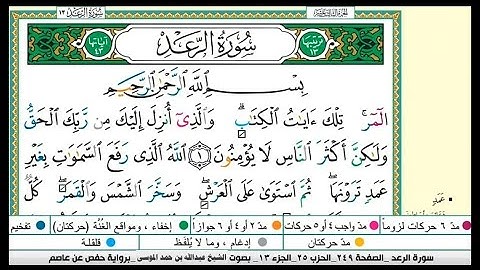 ١٣ سُورَةُ الرَّعْد
سُورَةُ الرَّعْدِ
ترتيبها ١٣
آياتها ٤٣
بِسْمِ اللَّهِ الرَّحْمَٰنِ الرَّحِيمِ
الٓمٓر ۚ تِلْكَ ءَايَٰتُ الْكِتَٰبِ ۗ وَالَّذِىٓ أُنزِلَ إِلَيْكَ مِن رَّبِّكَ الْحَقُّ
وَلَٰكِنَّ أَكْثَرَ النَّاسِ لَا يُؤْمِنُونَ ١ اللَّهُ الَّذِى رَفَعَ السَّمَٰوَٰتِ بِغَيْرِ
عَمَدٍ تَرَوْنَهَا ۖ ثُمَّ اسْتَوَىٰ عَلَى الْعَرْشِ ۖ وَسَخَّرَ الشَّمْسَ وَالْقَمَرَ ۖ كُلٌّ
عَمَدٍ
مدّ ٦ حركات لزوماً مدّ واجب ٤ أو ٥ حركات مدّ ٢ أو ٤ أو ٦ جوازاً إخفاء ، ومواقع الغُنَّة (حركتان) تفخيم
مدّ حركتان إدغام ، وما لا يُلفَظ قلقلة
سورة الرعد_الصفحة ٢٤٩_ الحزب ٢٥_ الجزء ١٣_ بصوت الشيخ عبدالله بن حمد الموسى_ برواية حفص عن عاصم